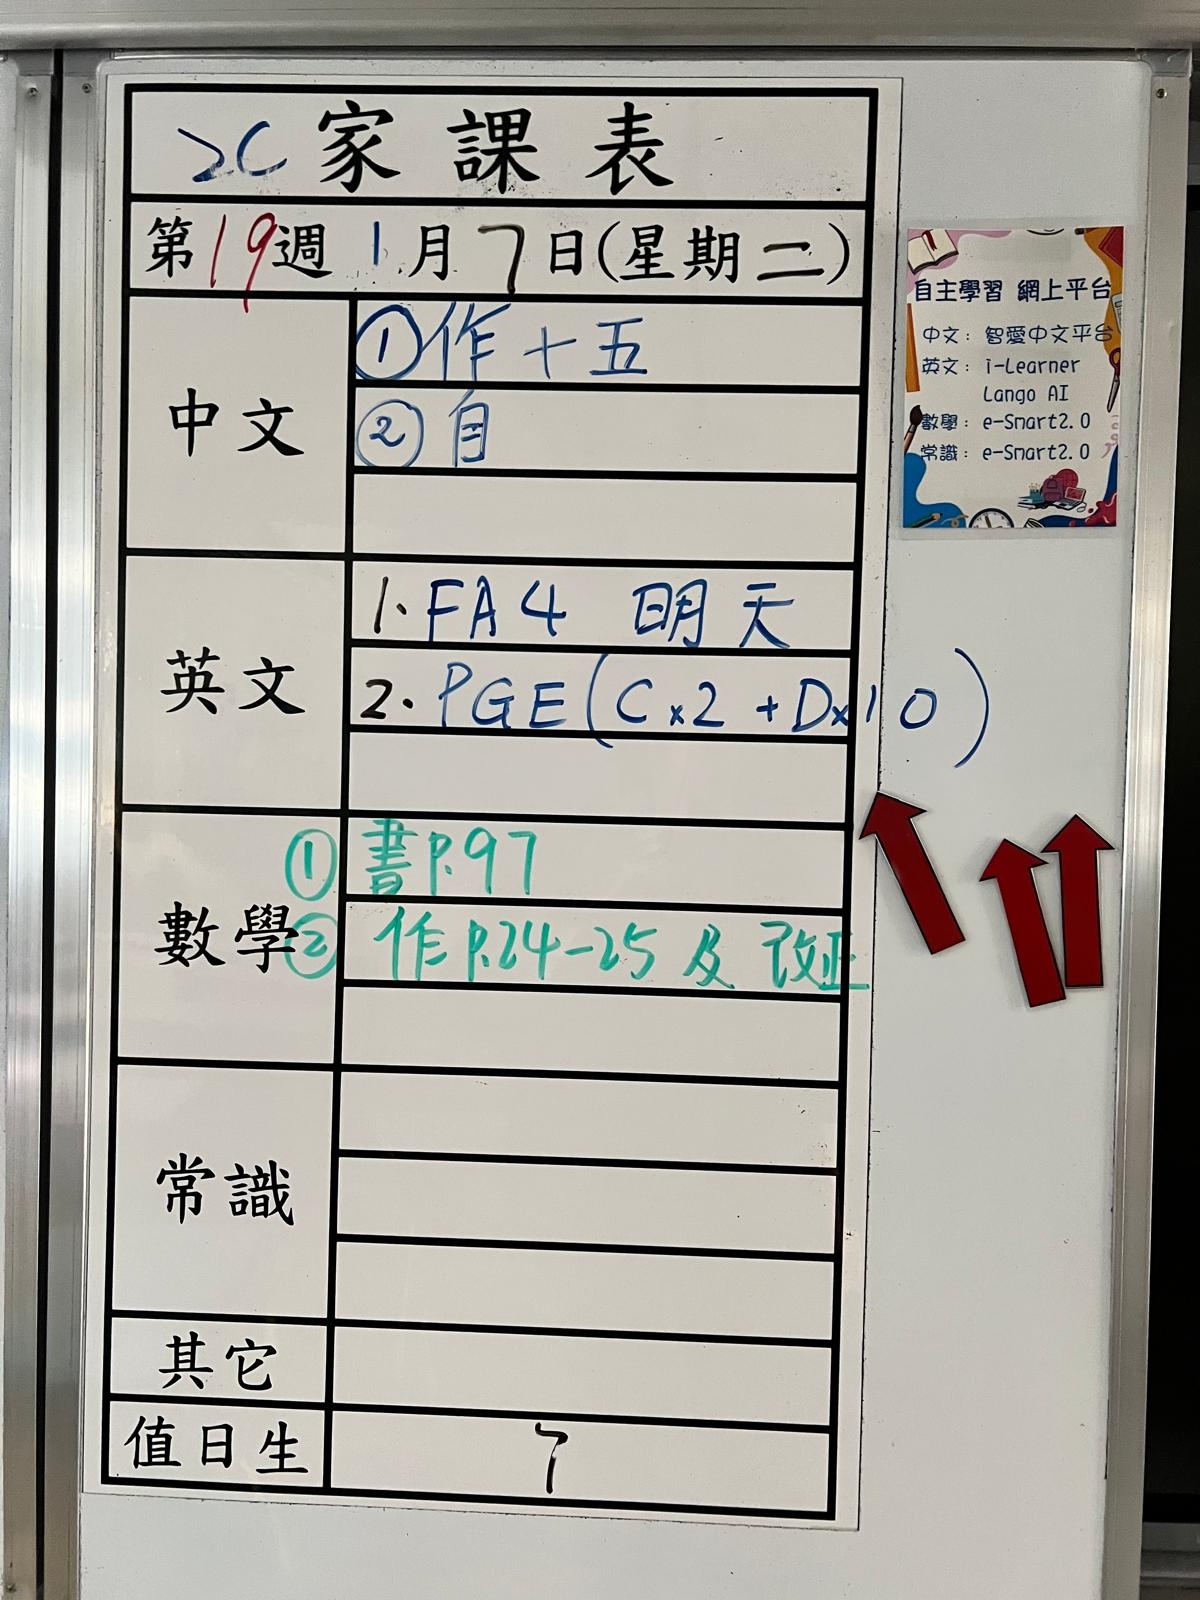 2C 家課表
第19週 1月7日(星期二)
中文
①作十五
②自
英文
1. FA4 明天
2. PGE(C×2+D×10)
數學
①書P.97
②作P.24-25及改正
常識
其它
值日生
7
自主學習 網上平台
中文：智愛中文平台
英文：i-Learner
Lango AI
數學：e-Smart2.0
常識：e-Smart2.0